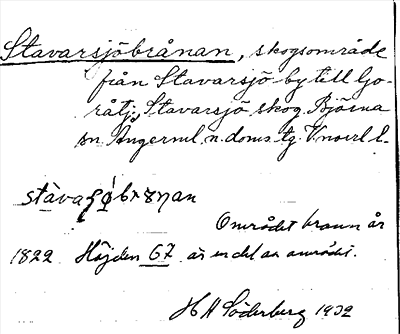 Stavarsjöbrånan, skogsområde
från Stavarsjö by till Go-
rålj, Stavarsjö skog. Björna
sn. Ångerml. n. doms. tg. Vnorrl. l.
Området brann år
1822. Höjden 67 är en del av området.
H A Söderberg 1932